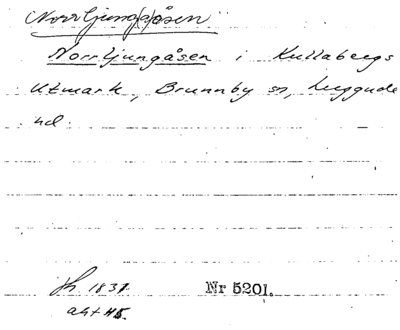 Norrljung(s)åsen
Norrljungåsen i Kullabergs
Utmark, Brunnby sn, Luggude
hd.
1831. Nr 5201.
akt 45.